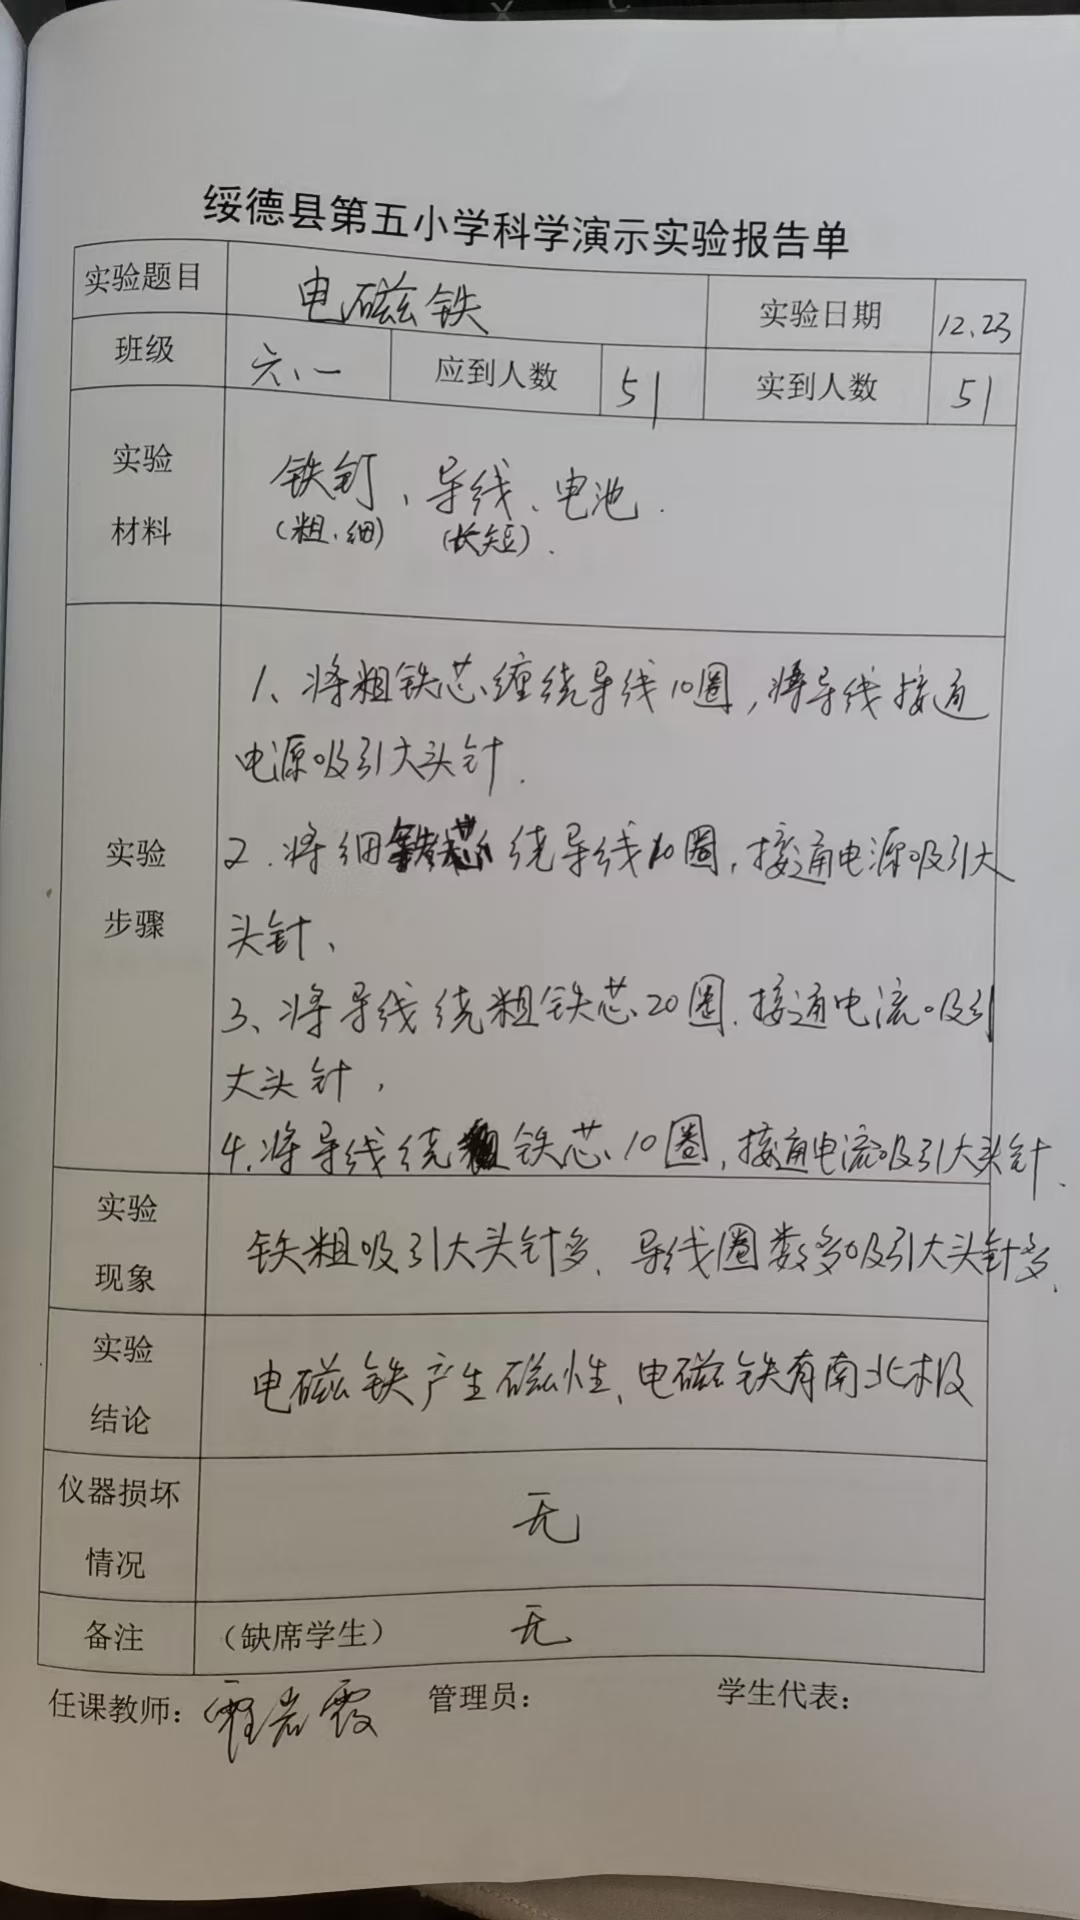 绥德县第五小学科学演示实验报告单
实验题目 电磁铁 实验日期 12.23
班级 六、一 应到人数 51 实到人数 51
实验材料
铁钉、导线、电池.
(粗.细) (长短).
实验步骤
1、将粗铁芯缠绕导线10圈,将导线接通
电源吸引大头针.
2.将细铁芯绕导线10圈,接通电源吸引大
头针、
3、将导线绕粗铁芯20圈.接通电流吸引
大头针,
4.将导线绕粗铁芯10圈,接通电流吸引大头针.
实验现象
铁粗吸引大头针多、导线圈数多吸引大头针多.
实验结论
电磁铁产生磁性、电磁铁有南北极
仪器损坏情况 无
备注 (缺席学生) 无
任课教师: 管理员: 学生代表: